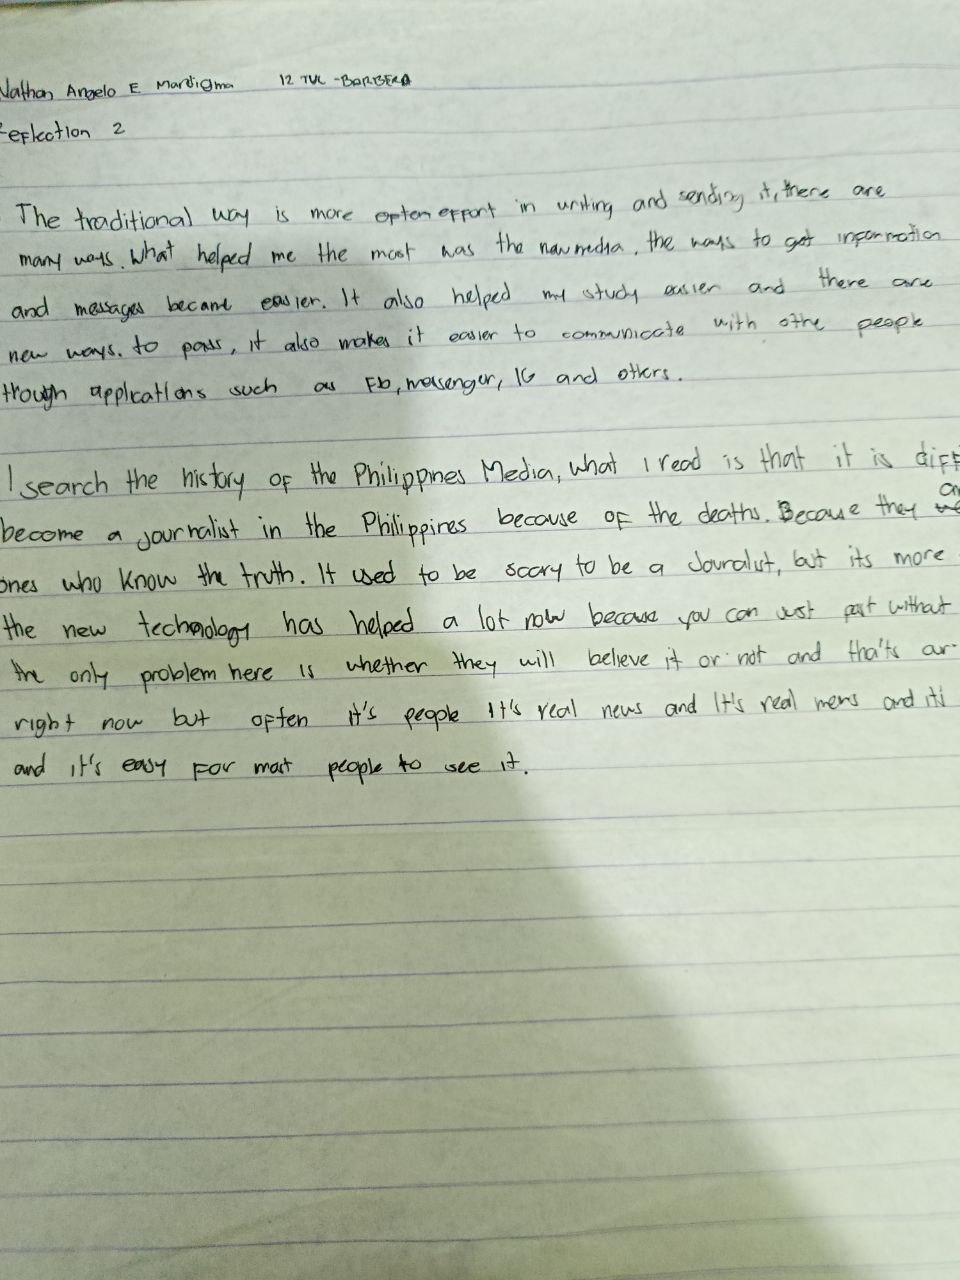 Nathan Angelo E Mardigma 12 TVL - BARBERA
Reflection 2
The traditional way is more often effort in writing and sending it, there are
many ways. What helped me the most was the new media, the ways to get information
and messages became easier. It also helped my study easier and there are
new ways. to pass, it also makes it easier to communicate with othe people
through applications such as Fb, messenger, IG and others.
I search the history of the Philippines Media, what I read is that it is diff
become a journalist in the Philippines because of the deaths. Because they
ones who know the truth. It used to be scary to be a Jouralist, but its more
the new technology has helped a lot now because you can just post without
the only problem here is whether they will believe it or not and tha'ts
right now but often it's people It's real news and It's real news and
and it's easy for most people to see it.